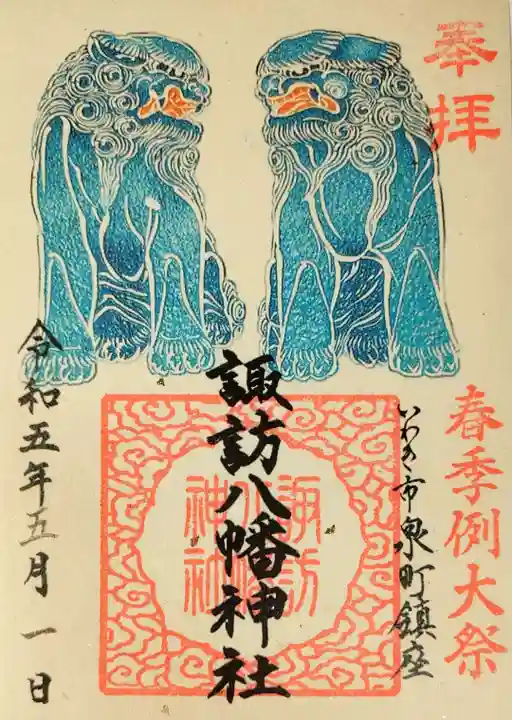 奉拝
春季例大祭
いわき市泉町鎮座
諏訪八幡神社
諏訪
八幡
神社
令和五年五月一日